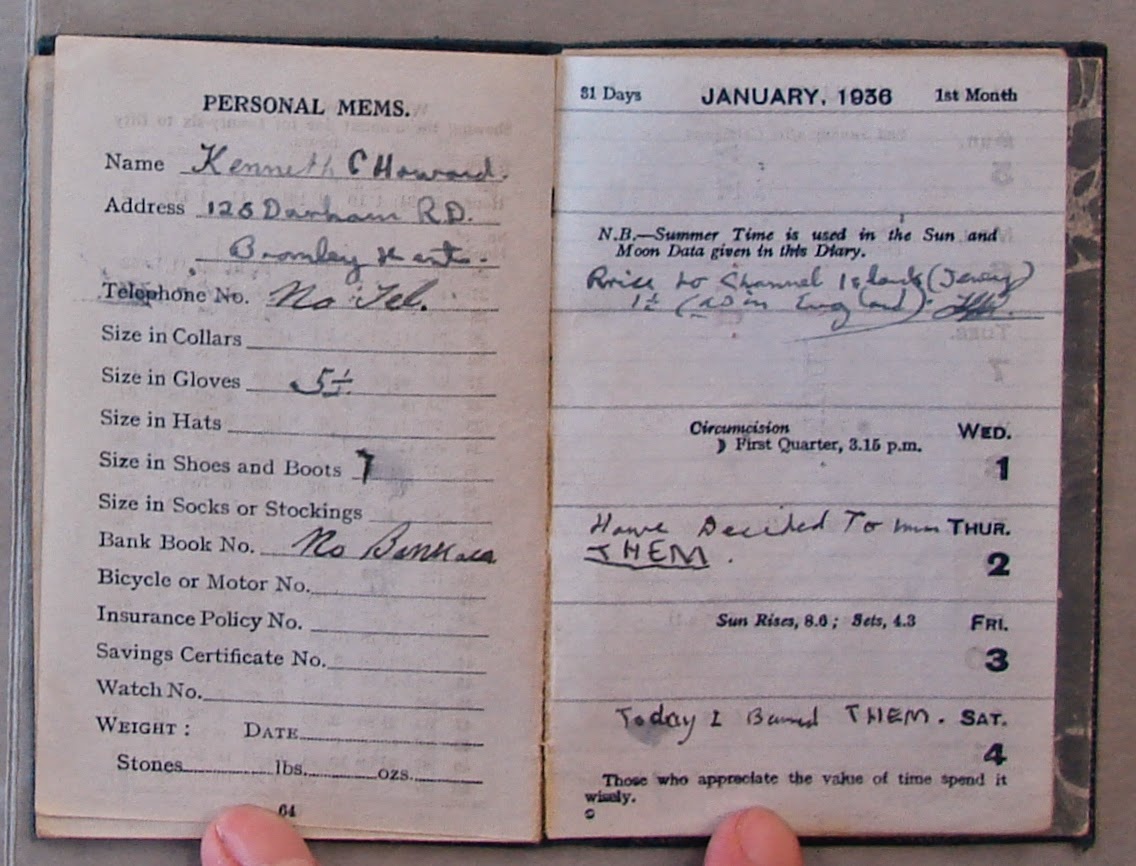 PERSONAL MEMS.
Name Kenneth C Howard.
Address 128 Durham RD.
Bromley Kent.
Telephone No. No Tel.
Size in Collars
Size in Gloves 5½
Size in Hats
Size in Shoes and Boots 7
Size in Socks or Stockings
Bank Book No. No Bank
Bicycle or Motor No.
Insurance Policy No.
Savings Certificate No.
Watch No.
WEIGHT : DATE
Stones lbs. ozs.
64
31 Days JANUARY, 1936 1st Month
N.B.—Summer Time is used in the Sun and
Moon Data given in this Diary.
Price to Channel Islands (Jersey)
1½ (as in England).
Circumcision WED.
First Quarter, 3.15 p.m.
1
Have Decided To THUR.
THEM.
2
Sun Rises, 8.6 ; Sets, 4.3 FRI.
3
Today I Burned THEM. SAT.
4
Those who appreciate the value of time spend it
wisely.